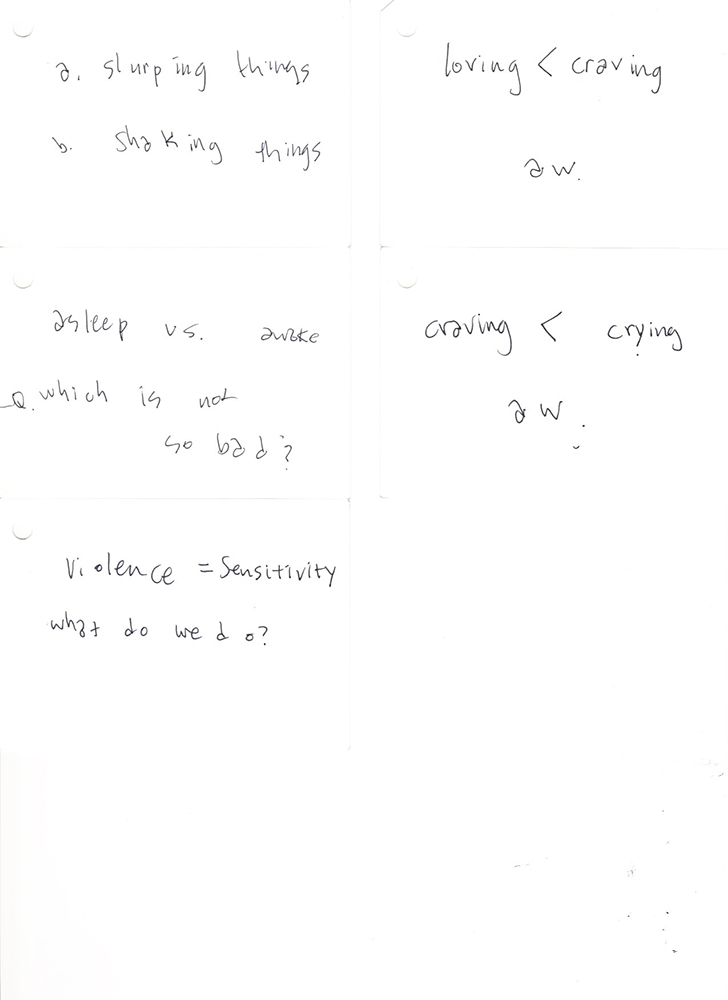 a. slurping things
b. shaking things
loving < craving
aw.
asleep vs. awake
Q. which is not
so bad?
craving < crying
aw.
violence = sensitivity
what do we do?